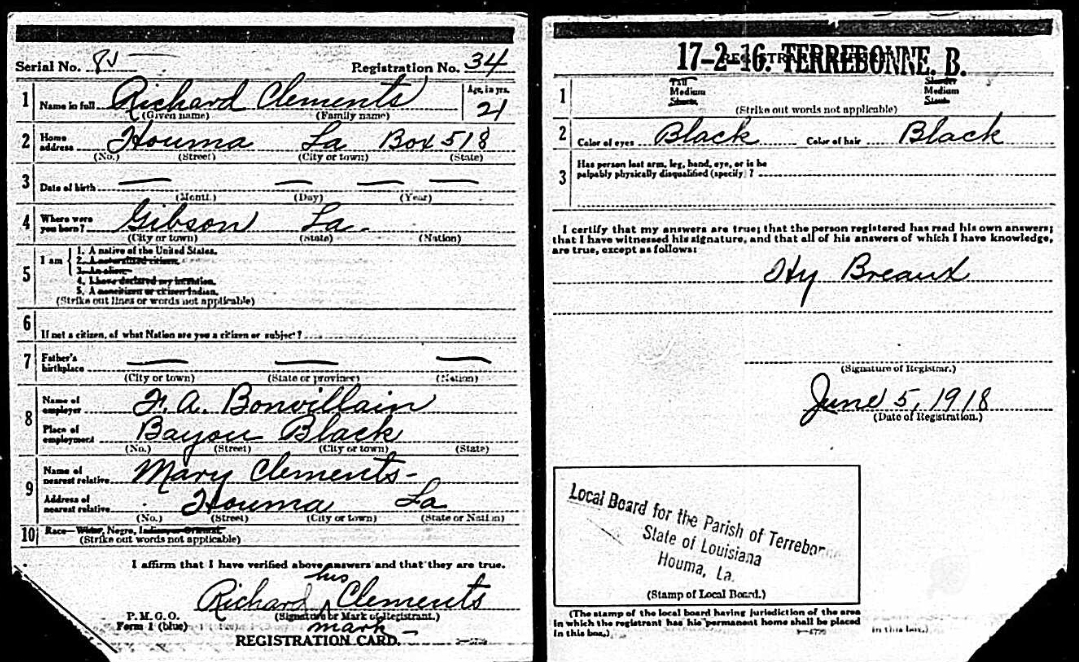 Serial No. Registration No. 34
1 Name in full Richard Clements Age, in yrs. 21
(Given name) (Family name)
2 Home address Houma La Box 518
(No.) (Street) (City or town) (State)
3 Date of birth — — — —
(Month) (Day) (Year)
4 Where were you born? Gibson La.
(City or town) (State) (Nation)
5 I am
1. A native of the United States.
2. A naturalized citizen.
3. An alien.
4. I have declared my intention.
5. A noncitizen or citizen Indian.
(Strike out lines or words not applicable)
6 If not a citizen, of what Nation are you a citizen or subject?
7 Father's birthplace — — —
(City or town) (State or province) (Nation)
8 Name of employer F. A. Bonvillain
Place of employment Bayou Black
(No.) (Street) (City or town) (State)
9 Name of nearest relative Mary Clements-
Address of nearest relative Houma La
(No.) (Street) (City or town) (State or Nation)
10 Race— White, Negro, Indian, or Oriental.
(Strike out words not applicable)
I affirm that I have verified above answers and that they are true.
his
Richard Clements
(Signature or Mark of Registrant.)
mark-
P.M.G.O.
Form 1 (blue)
REGISTRATION CARD.
17-2-16. TERREBONNE. B.
1 Tall Medium Short Slender Medium Stout
(Strike out words not applicable)
2 Color of eyes Black Color of hair Black
3 Has person lost arm, leg, hand, eye, or is he
palpably physically disqualified (specify)?
I certify that my answers are true; that the person registered has read his own answers;
that I have witnessed his signature, and that all of his answers of which I have knowledge,
are true, except as follows:
Hy Breaux
(Signature of Registrar.)
June 5, 1918
(Date of Registration.)
Local Board for the Parish of
State of Louisiana
Houma, La.
(Stamp of Local Board.)
(The stamp of the local board having jurisdiction of the area
in which the registrant has his permanent home shall be placed
in this box.)
in this box.)